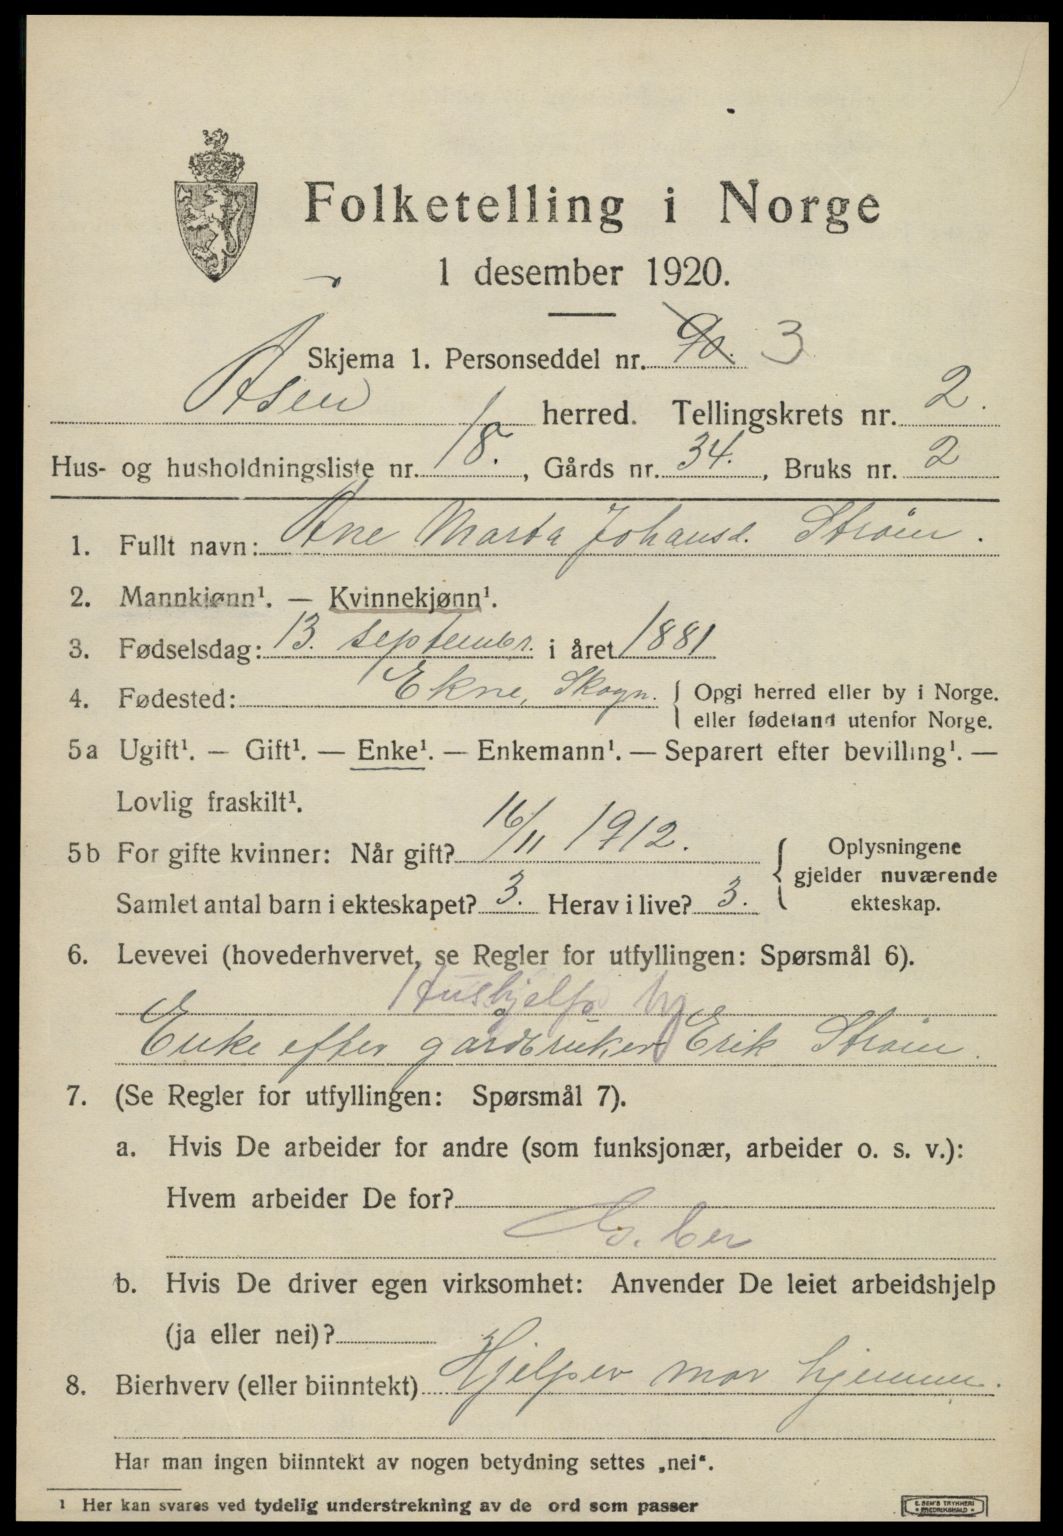 Folketelling i Norge
1 desember 1920.
Skjema 1. Personseddel nr. 90. 3
Åsen herred. Tellingskrets nr. 2.
Hus- og husholdningsliste nr. 18., Gårds nr. 34., Bruks nr. 2
1. Fullt navn: Ane Marta Johansd. Strøm.
2. Mannkjønn¹. — Kvinnekjønn¹.
3. Fødselsdag: 13. septembr. i året 1881
4. Fødested: Ekne, Skogn. { Opgi herred eller by i Norge.
eller fødeland utenfor Norge.
5a Ugift¹. — Gift¹. — Enke¹. — Enkemann¹. — Separert efter bevilling¹. —
Lovlig fraskilt¹.
5b For gifte kvinner: Når gift? 16/11 1912. { Oplysningene
gjelder nuværende
Samlet antal barn i ekteskapet? 3. Herav i live? 3. ekteskap.
6. Levevei (hovederhvervet, se Regler for utfyllingen: Spørsmål 6).
Hushjelp
Enke efter gårdbruker Erik Strøm.
7. (Se Regler for utfyllingen: Spørsmål 7).
a. Hvis De arbeider for andre (som funksjonær, arbeider o. s. v.):
Hvem arbeider De for?
b. Hvis De driver egen virksomhet: Anvender De leiet arbeidshjelp
(ja eller nei)?
8. Bierhverv (eller biinntekt) Hjelper mor hjemme.
Har man ingen biinntekt av nogen betydning settes „nei“.
¹ Her kan svares ved tydelig understrekning av de ord som passer
E. SEM'S TRYKKERI
FREDRIKSHALD